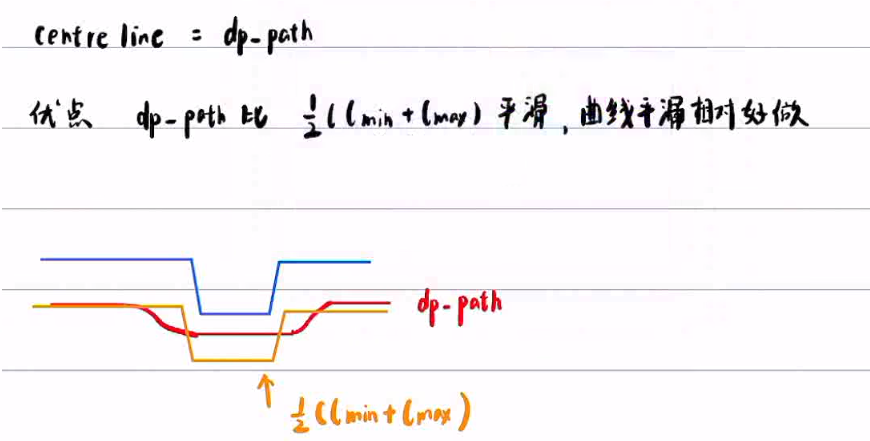 centre line = dp-path
优点 dp-path 比 1/2(lmin+lmax) 平滑,曲线平滑相对好做
dp-path
1/2(lmin+lmax)